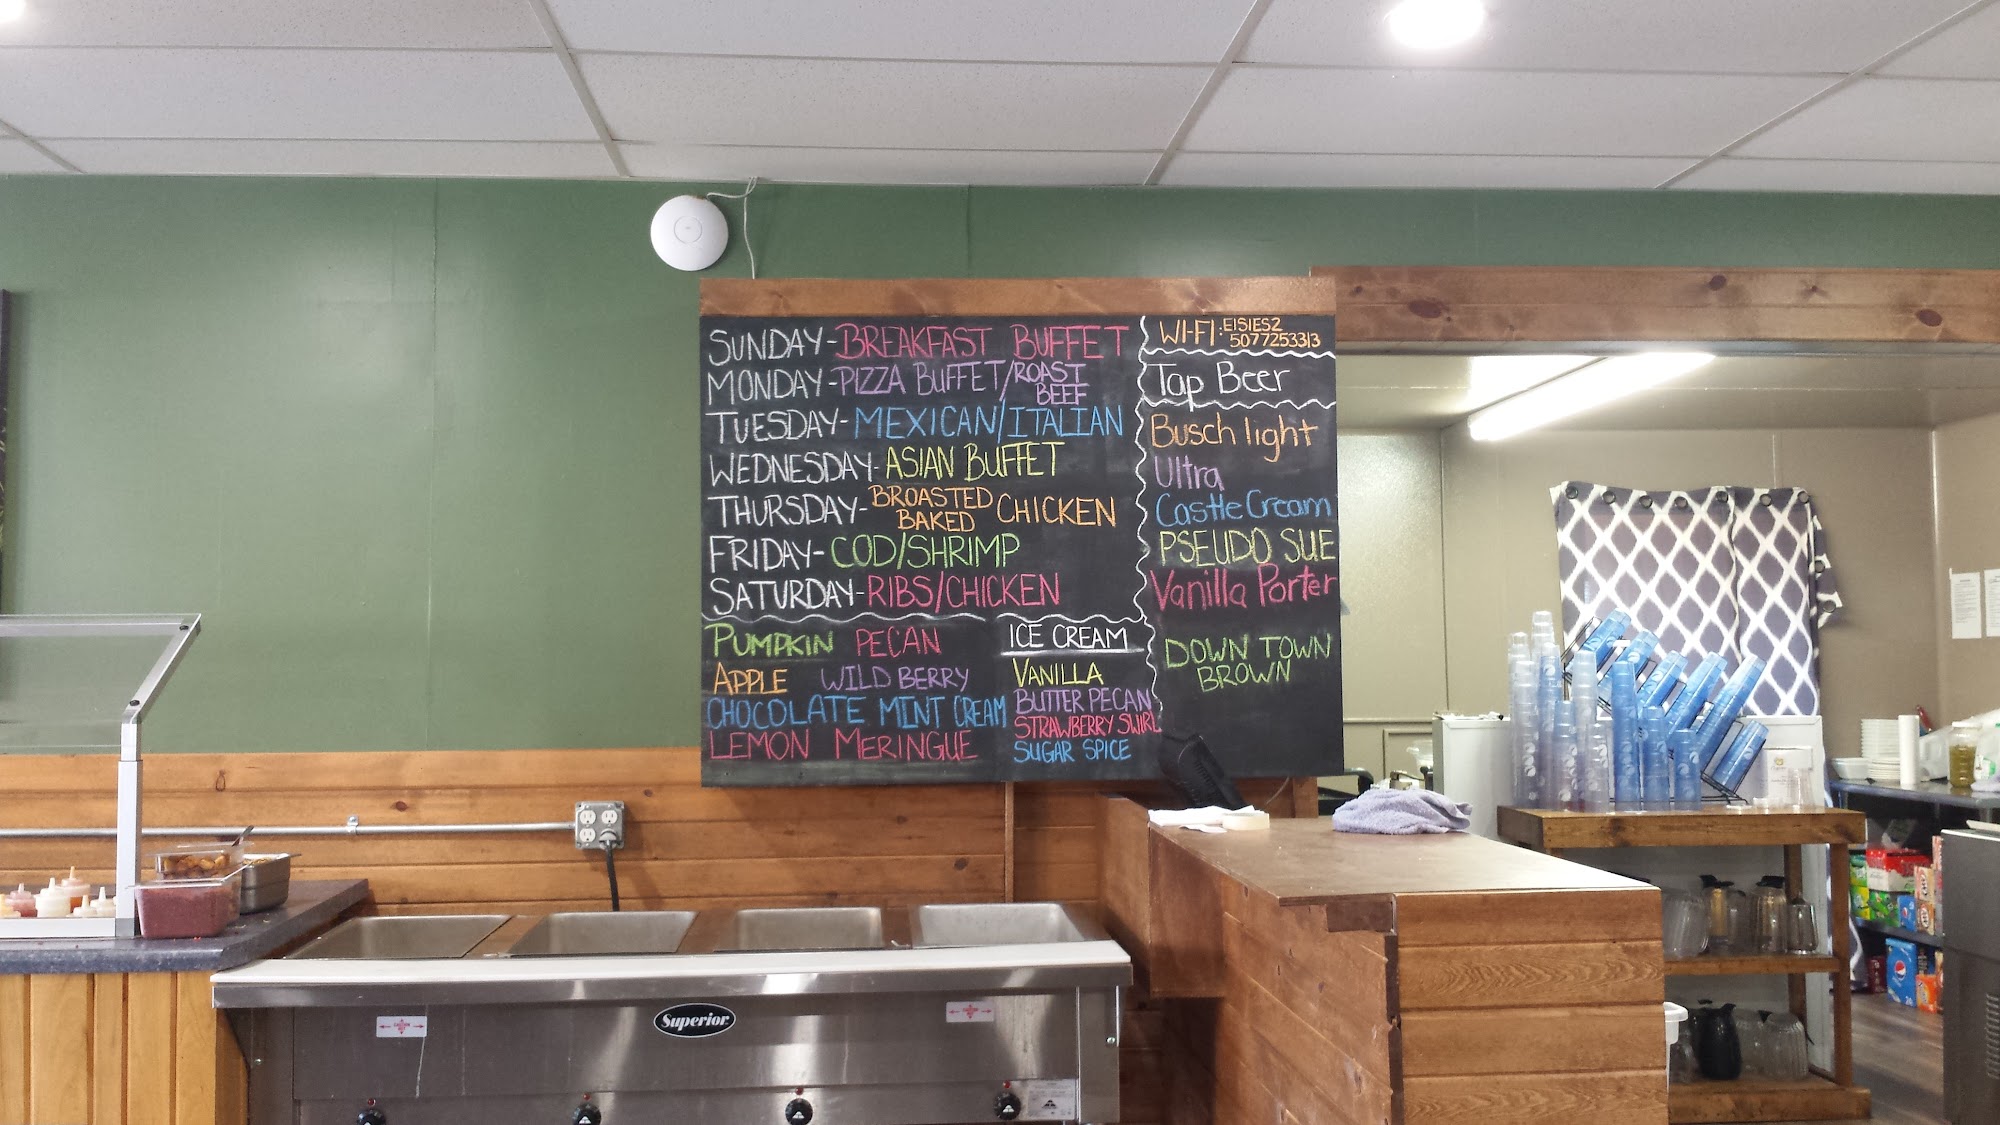 SUNDAY - BREAKFAST BUFFET
MONDAY - PIZZA BUFFET/ROAST BEEF
TUESDAY - MEXICAN/ITALIAN
WEDNESDAY - ASIAN BUFFET
THURSDAY - BROASTED BAKED CHICKEN
FRIDAY - COD/SHRIMP
SATURDAY - RIBS/CHICKEN
PUMPKIN PECAN
APPLE WILD BERRY
CHOCOLATE MINT CREAM
LEMON MERINGUE
ICE CREAM
VANILLA
BUTTER PECAN
STRAWBERRY SWIRL
SUGAR SPICE
WI-FI: EISIES2
5077253313
Tap Beer
Busch light
Ultra
Castle Cream
PSEUDO SUE
Vanilla Porter
DOWN TOWN
BROWN
Superior
pepsi